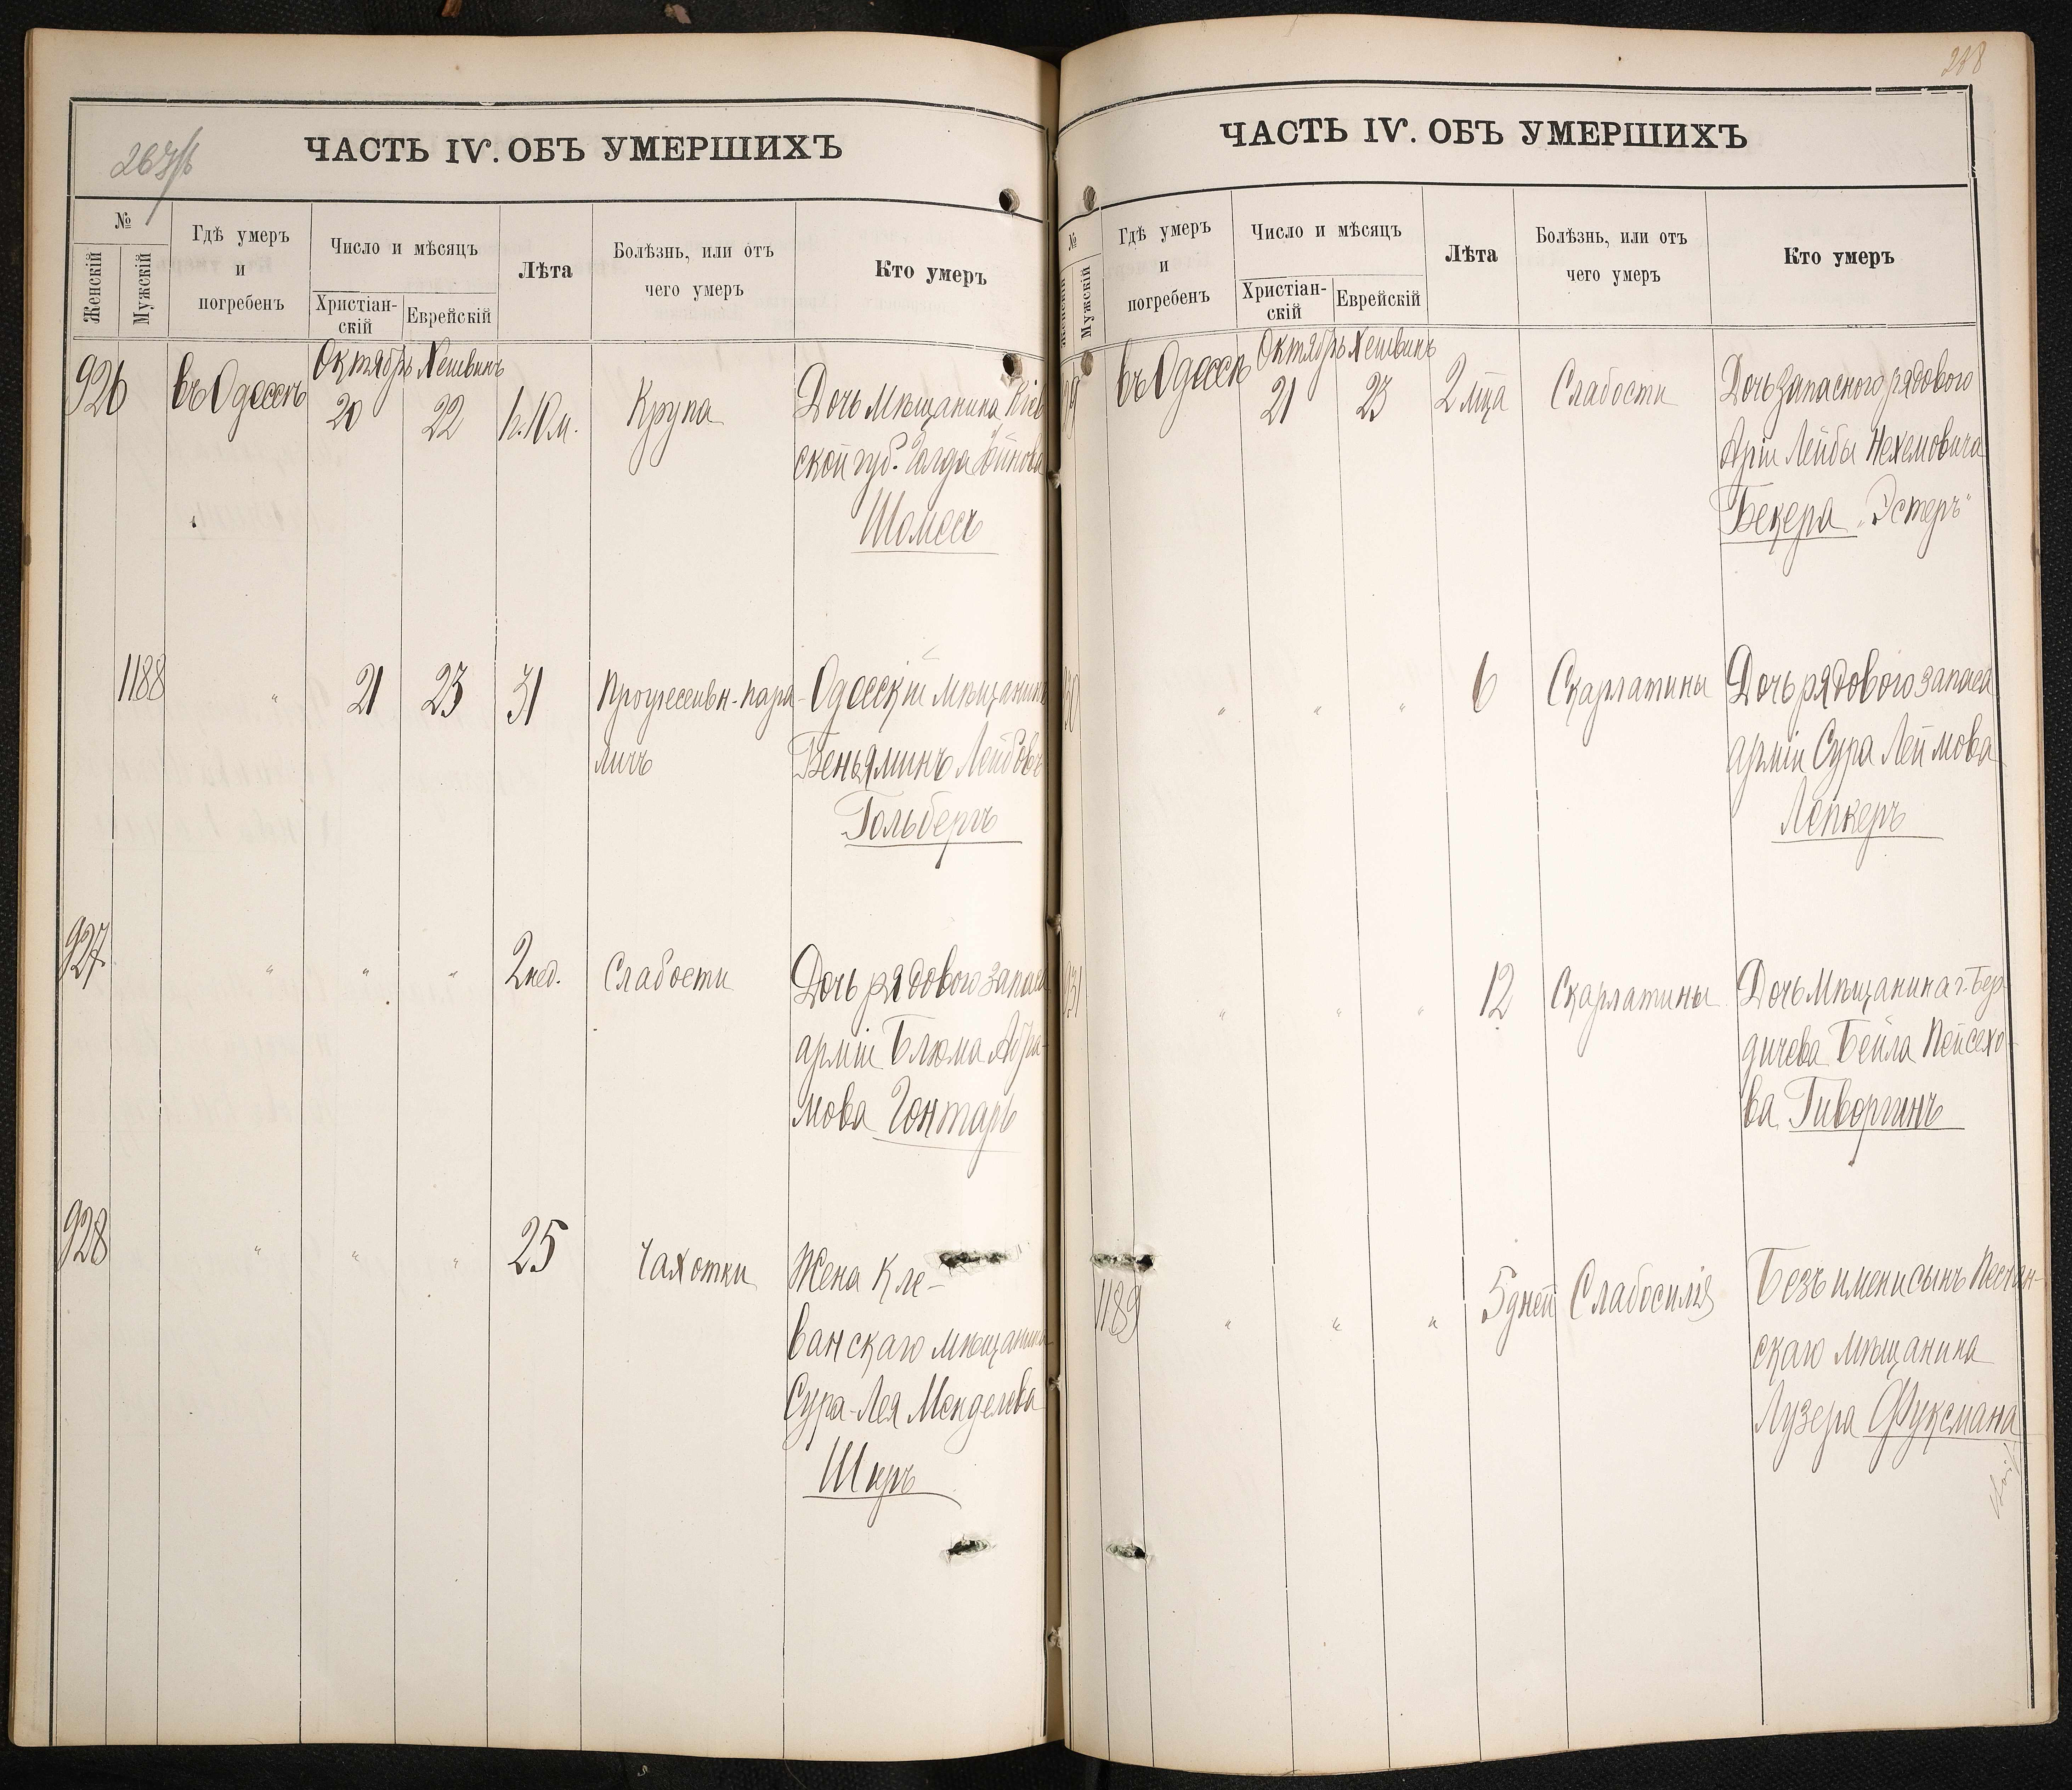 ЧАСТЬ IV. ОБЪ УМЕРШИХЪ
№
Женскій
Мужскій
Гдѣ умеръ
и
погребенъ
Число и мѣсяцъ
Христіан-
скій
Еврейскій
Лѣта
Болѣзнь, или отъ
чего умеръ
Кто умеръ
926
въ Одессѣ
Октябрь
20
Хешвинъ
22
1г. 10 м.
Крупа
Дочь Мѣщанина Кіев
ской губ. Голда
Шомесъ
1188
"
21
23
31
Прогрессивн. пара-
личъ
Одесскій мѣщанинъ
Беньяминъ Лейбовъ
Гольбергъ
927
"
"
"
2 нед.
Слабости
Дочь рядового запаса
арміи Блюма Абра-
мова Гонтарь
928
"
"
"
25
Чахотки
Жена Кле-
ванскаго мѣщанина
Сура-Лея Менделева
Ширъ
218
ЧАСТЬ IV. ОБЪ УМЕРШИХЪ
№
Женскій
Мужскій
Гдѣ умеръ
и
погребенъ
Число и мѣсяцъ
Христіан-
скій
Еврейскій
Лѣта
Болѣзнь, или отъ
чего умеръ
Кто умеръ
въ Одессѣ
Октябрь
21
Хешвинъ
23
2 мца
Слабости
Дочь запасного рядового
Арiи Лейбы Нехемовича
Бекера „Эстеръ"
"
"
"
6
Скарлатины
Дочь рядового запаса
арміи Сура Леймова
Лепкеръ
931
"
"
"
12
Скарлатины
Дочь Мѣщанина г. Бер
дичева Бейла Пейсехо-
ва Гиворгинъ
1189
"
"
"
5 дней
Слабосилія
Безъ имени сынъ Песчан-
скаго мѣщанина
Лузера Фуксмана